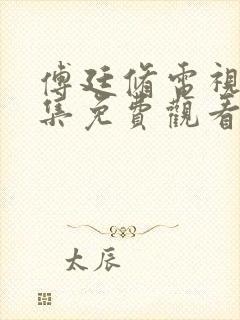 傅廷脩電視
集免費觀看
太辰